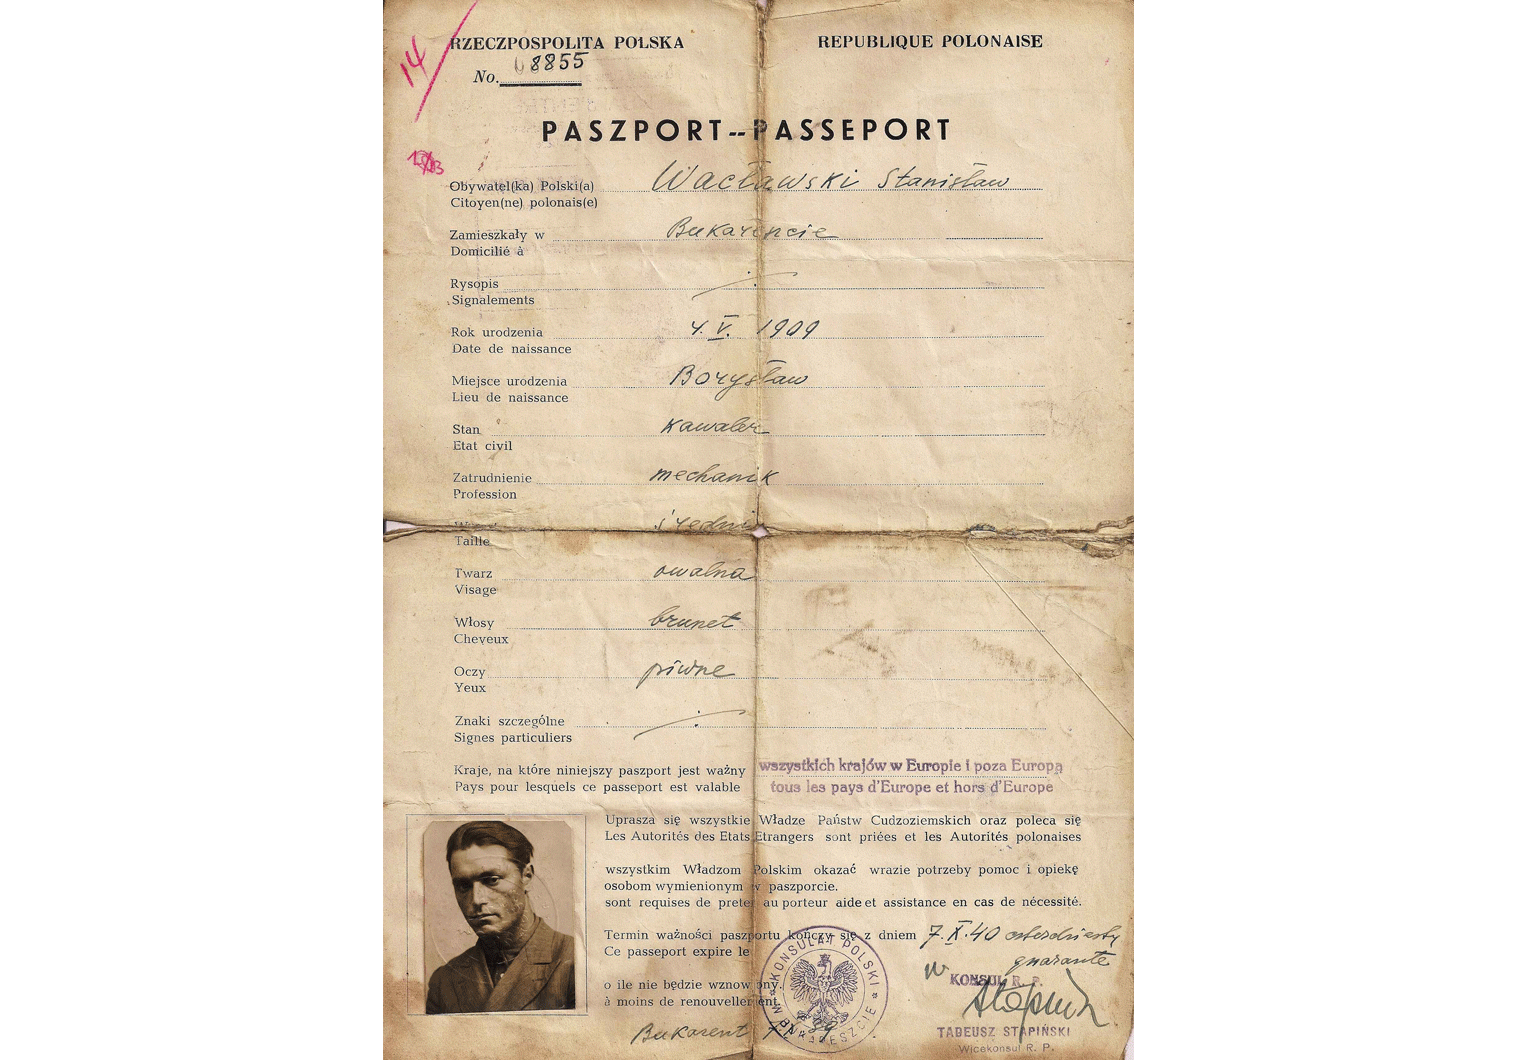 14
RZECZPOSPOLITA POLSKA
REPUBLIQUE POLONAISE
No. 08855
PASZPORT--PASSEPORT
Obywatel(ka) Polski(a) Wacławski Stanisław
Citoyen(ne) polonais(e)
Zamieszkały w Bukarencie
Domicilié à
Rysopis
Signalements
Rok urodzenia 4. V. 1909
Date de naissance
Miejsce urodzenia Borysław
Lieu de naissance
Stan kawaler
Etat civil
Zatrudnienie mechanik
Profession
średni
Taille
Twarz owalna
Visage
Włosy brunet
Cheveux
Oczy piwne
Yeux
Znaki szczególne
Signes particuliers
Kraje, na które niniejszy paszport jest ważny wszystkich krajów w Europie i poza Europą
Pays pour lesquels ce passeport est valable tous les pays d'Europe et hors d'Europe
Uprasza się wszystkie Władze Państw Cudzoziemskich oraz poleca się
Les Autorités des Etats Etrangers sont priées et les Autorités polonaises
wszystkim Władzom Polskim okazać wrazie potrzeby pomoc i opiekę
osobom wymienionym w paszporcie.
sont requises de preter au porteur aide et assistance en cas de nécessité.
Termin ważności paszportu kończy się z dniem 7.X.40 czterdziesty
Ce passeport expire le quarante
o ile nie będzie wznowiony.
à moins de renouvellement.
w KONSUL R. P.
KONSULAT POLSKI * W BUKARESZCIE *
Bukareszt 39
TADEUSZ STAPIŃSKI
Wicekonsul R. P.